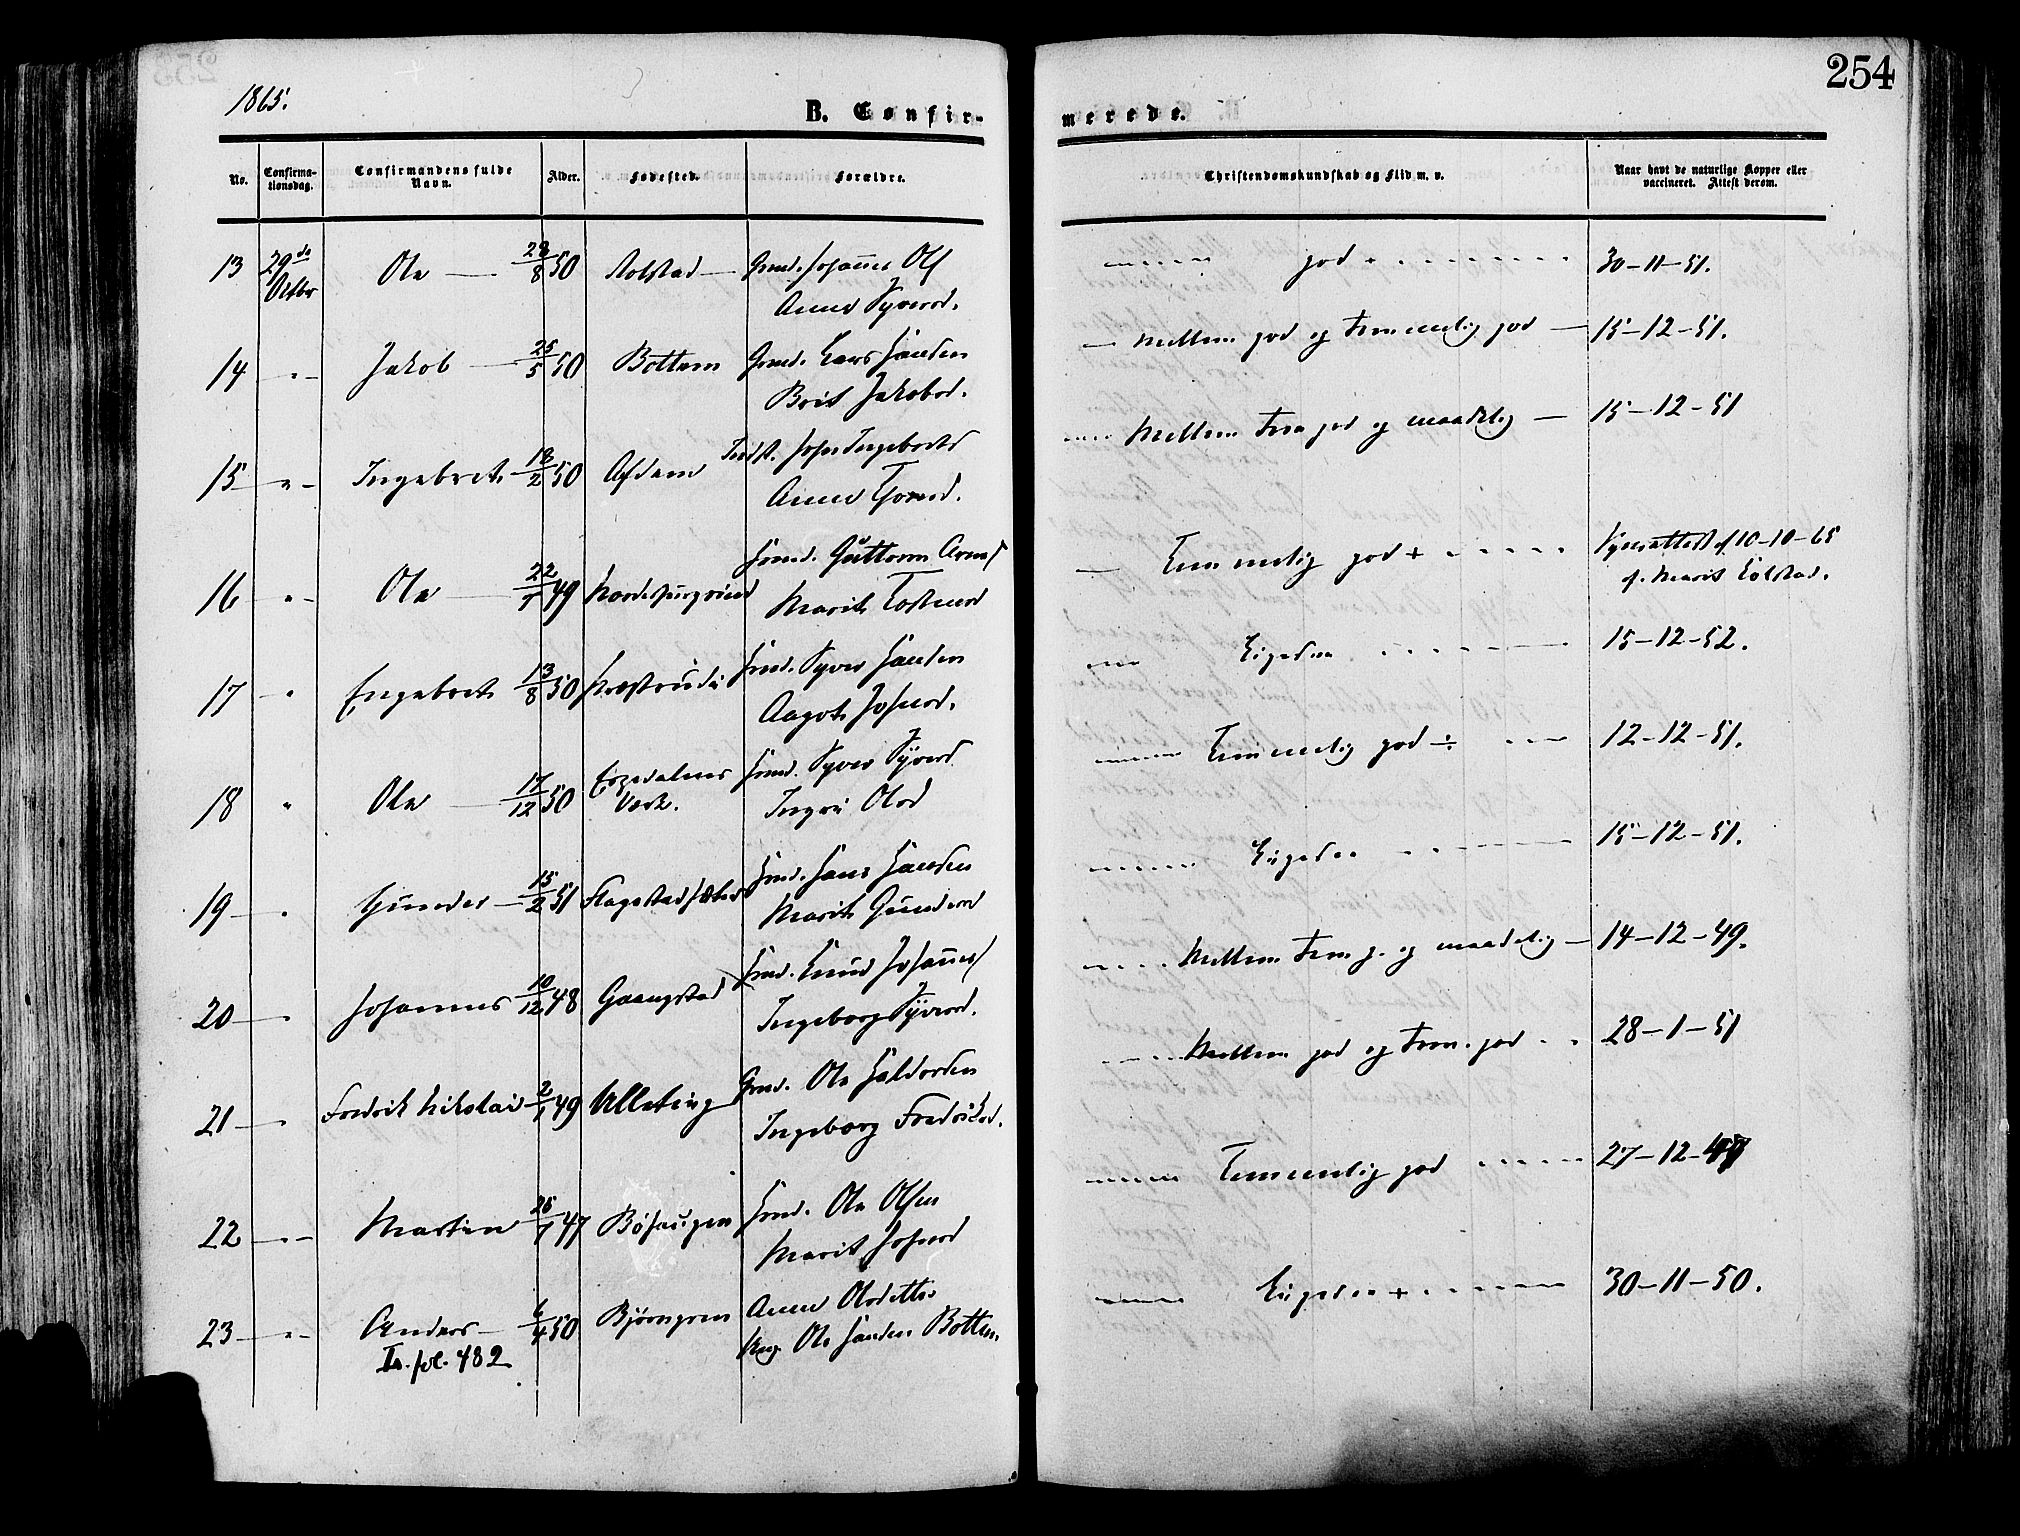 254
1865.
B. Confir-
merede.
No.
Confirma-
tionsdag.
Confirmandens fulde
Navn.
Alder.
Fødested.
Forældre.
Christendomskundskab og Flid m. v.
Naar havt de naturlige Kopper eller
vaccineret. Attest derom.
13 29de Octbr Ole 28/8 50 Rolstad Grmd. Johannes Ols
Anne Syversd.
god + 30-11-51.
14 Jakob 25/5 50 Bottem Grmd. Lars Hansen
Brit Jakobsd.
Mellem god og temmelig god 15-12-51.
15 Ingebret 18/2 50 Indst. John Ingebrets
Anne
Mellem Tem god og maadelig 15-12-51
16 Ole 22/7 49 Hmd. Guttorm Arnes
Marit
Temmelig god + 10-10-65
Marit
17 Engebret 13/8 50 Hmd. Syver Hansen
Aagot Johnsd.
Ligedan 15-12-52.
18 Ole 17/12 50 Espedalens
Værk.
Hmd. Syver Syvers
Ingri Olsd
Temmelig god ÷ 12-12-51.
19 Gunder 15/2 51 Flagestadsæter Hmd. Hans Hansen
Marit Gundersd
Ligedan 15-12-51.
20 Johannes 10/12 48 Gaangstad Hmd. Knud Johannes
Ingeborg Syversd.
Mellem Tem g. og maadelig 14-12-49.
21 Fredrik Nikolai 2/1 49 Ulleting Grmd. Ole Haldorsen
Ingeborg Fredriksd.
Mellem god og Tem. god 28-1-51
22 Martin 26/7 47 Bøhaugen Hmd. Ole Olsen
Marit Johnsd
Temmelig god 27-12-
23 Anders 6/4 50 Bjørngren Anne Olsdatter
Ung. Ole Hansen Bottem.
Ligedan + 30-11-50.
Is. fol. 482